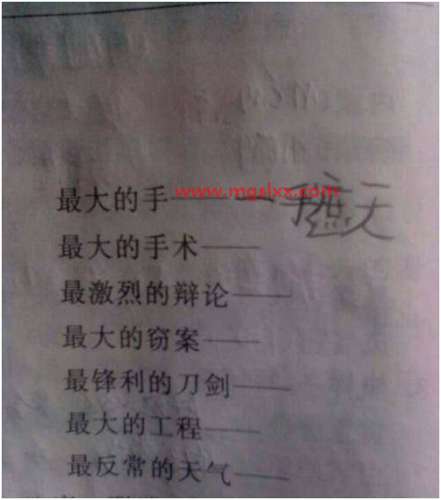 最大的手——一手遮天
www.mgslxx.com
最大的手术——
最激烈的辩论——
最大的窃案——
最锋利的刀剑——
最大的工程——
最反常的天气——